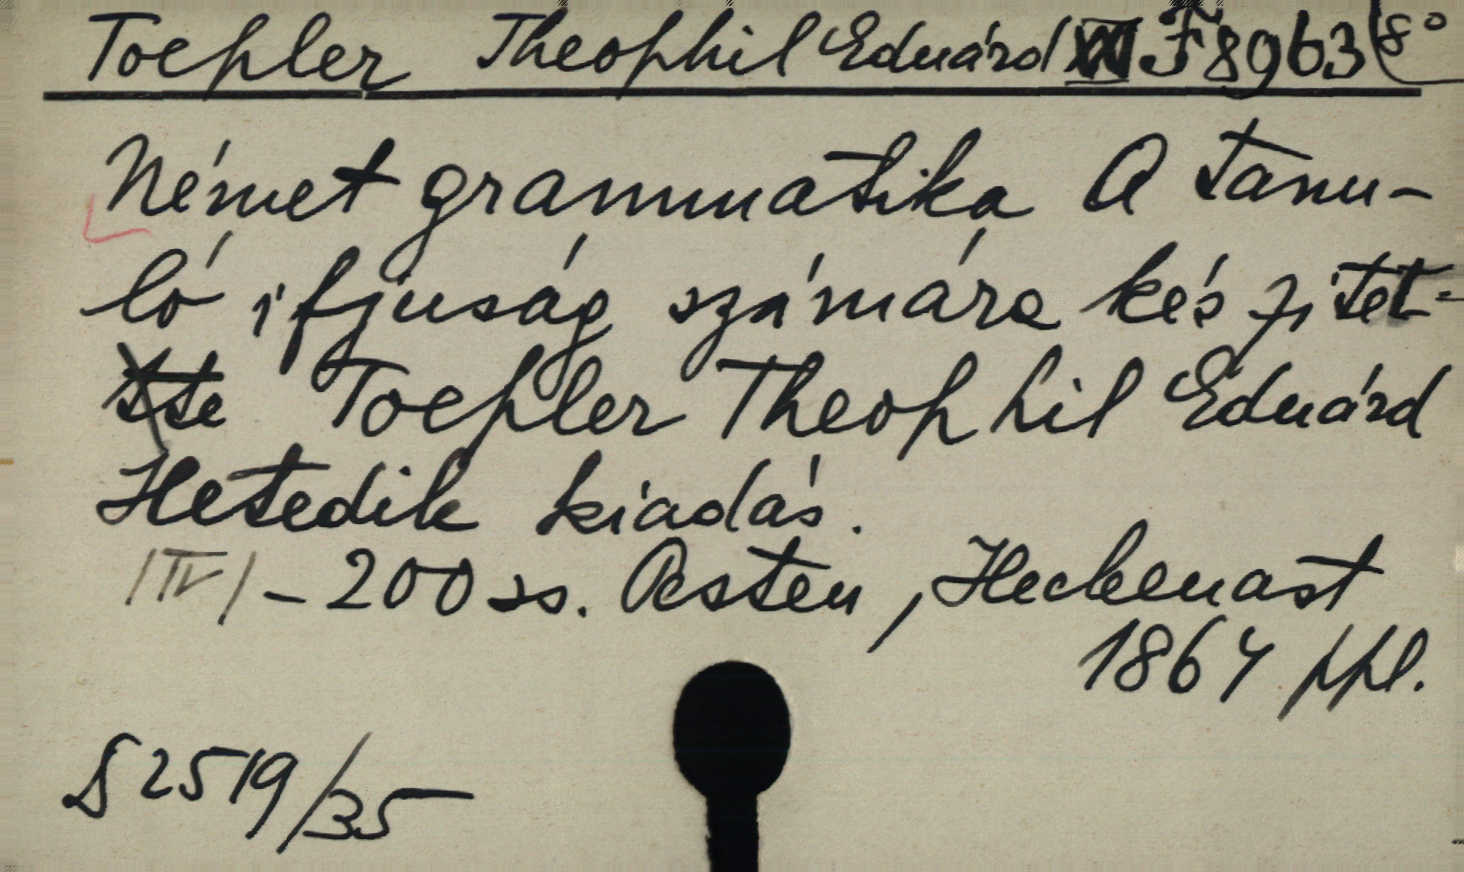 Toepler Theophil Eduárd F 8963 8°
Német grammatika A tanu-
ló ifjuság számára készitet-
te Toepler Theophil Eduárd
Hetedik kiadás.
/IV/ - 200 ss. Pesten, Heckenast
1864 ppl.
S 2519/35